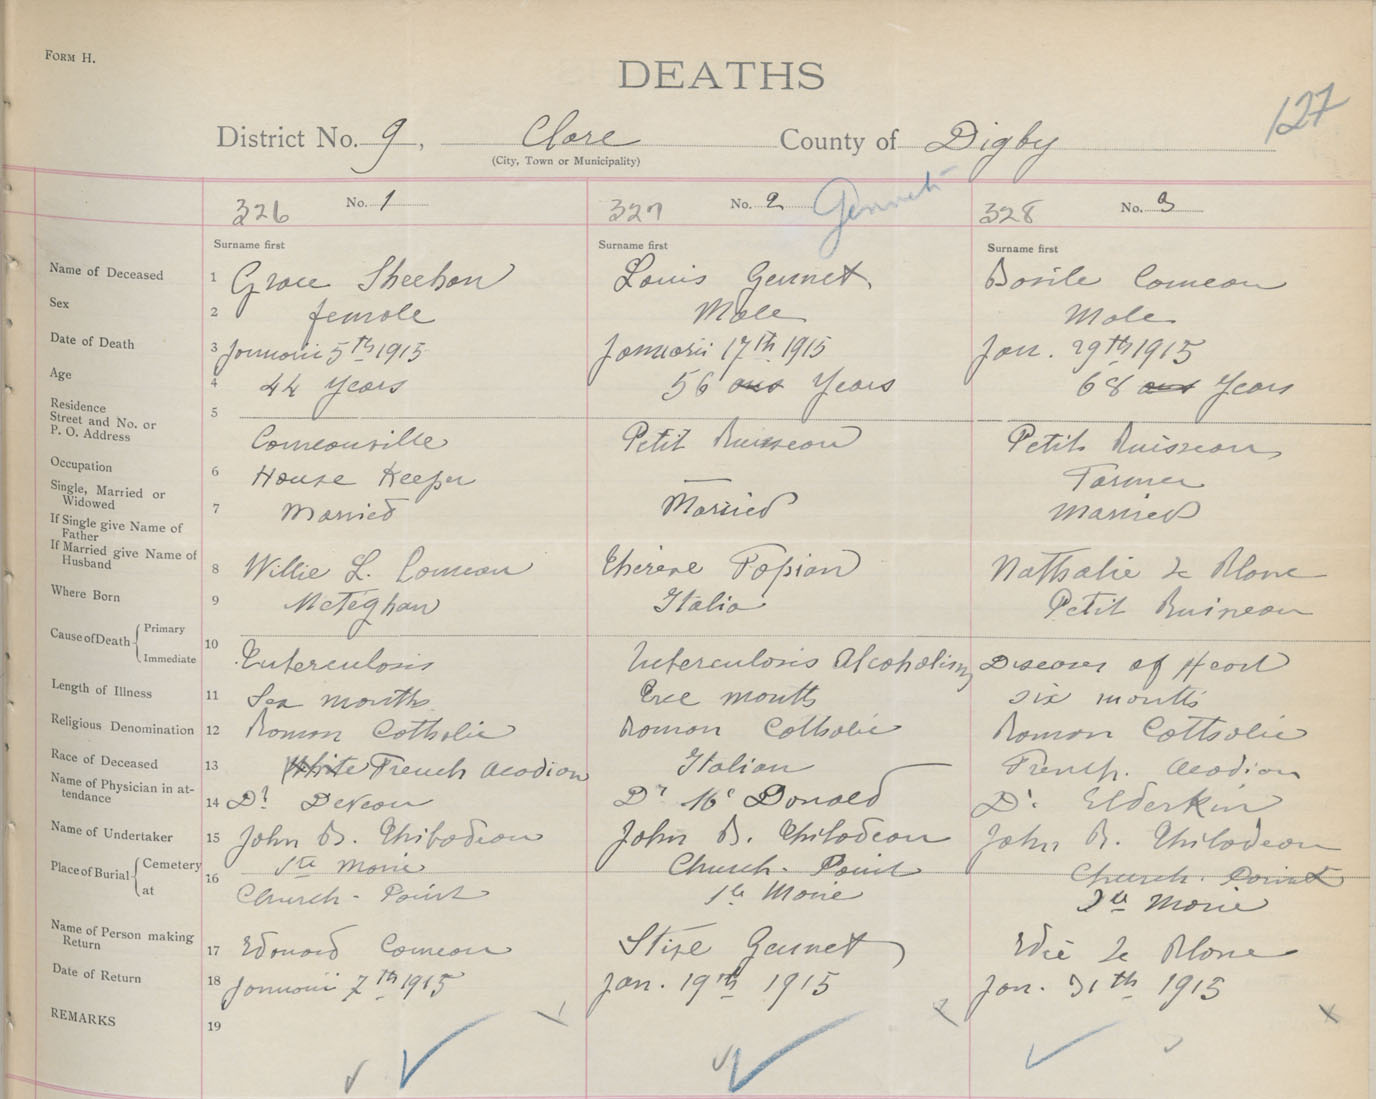 FORM H.
DEATHS
127
District No. 9, Clare County of Digby
(City, Town or Municipality)
326 No. 1 327 No. 2 328 No. 3
Surname first Surname first Surname first
Name of Deceased 1 Grace Sheehan Louis Gennet Basile Comeau
Sex 2 female Male Male
Date of Death 3 Januarii 5th 1915 Januarii 17th 1915 Jan. 29th 1915
Age 4 44 years 56 ans Years 68 ans Years
Residence 5
Street and No. or
P. O. Address Comeauville Petit Ruisseau Petit Ruisseau
Occupation 6 House Keeper Farmer
Single, Married or
Widowed 7 Married Married Married
If Single give Name of
Father
If Married give Name of
Husband 8 Willie L. Comeau Nathalie Le Blanc
Where Born 9 McTeghan Italia Petit Ruisseau
Cause of Death Primary
Immediate 10 Tuterculosis Tuterculosis Alcoholism Diseases of Heart
Length of Illness 11 months Tree months six months
Religious Denomination 12 Roman Catholic Roman Catholic Roman Catholic
Race of Deceased 13 White French Acadian Italian French. Acadian
Name of Physician in at-
tendance 14 Dr. DeVeau Dr Mc Donald Dr. Elderkin
Name of Undertaker 15 John B. Thibodeau John B. Thibodeau John B. Thibodeau
Place of Burial Cemetery 16 Ste Marie Church-Point Church-Point
at Church-Point Ste Marie Ste Marie
Name of Person making
Return 17 Edouard Comeau Gennet Le Blanc
Date of Return 18 Januarii 7th 1915 Jan. 19th 1915 Jan. 31th 1915
REMARKS 19